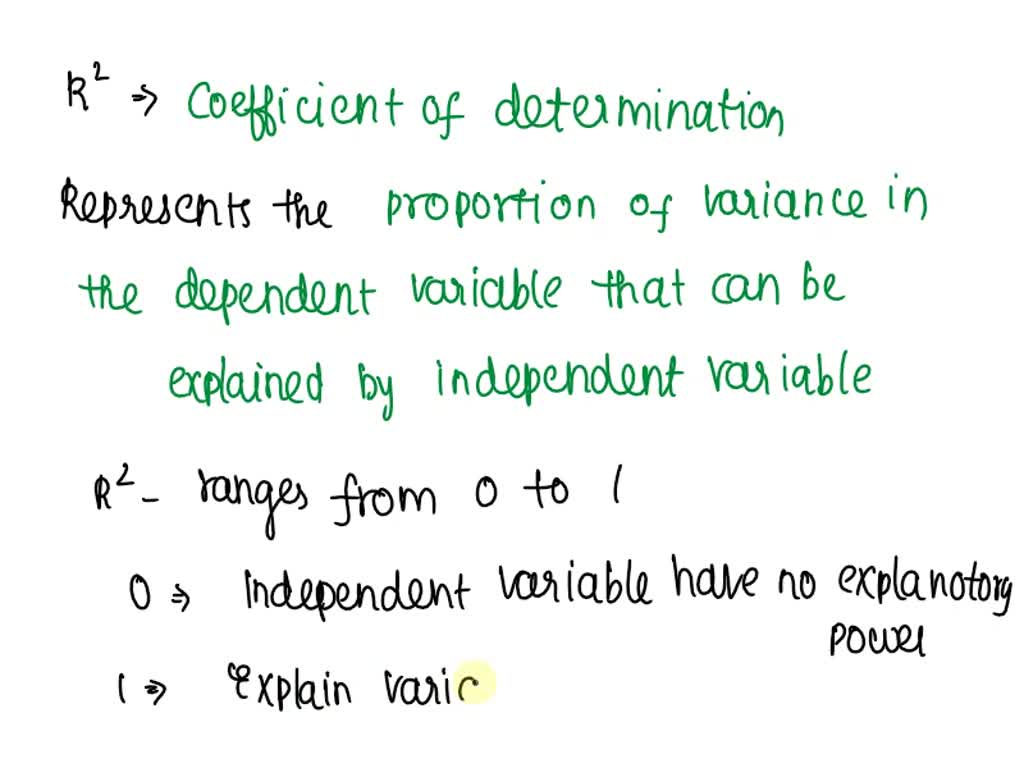 R² ⇒ Coefficient of determination
Represents the proportion of variance in
the dependent variable that can be
explained by independent variable
R² - ranges from 0 to 1
0 ⇒ Independent variable have no explanotory
power
1 ⇒ Explain varia